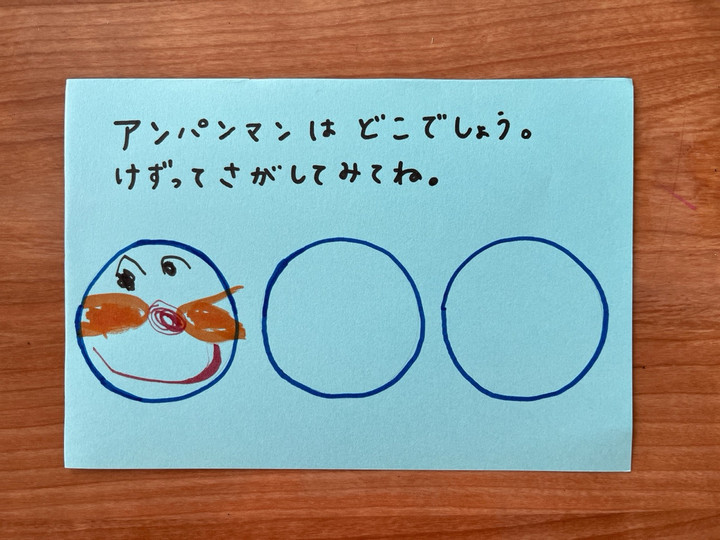 アンパンマンは どこでしょう。
けずって さがしてみてね。